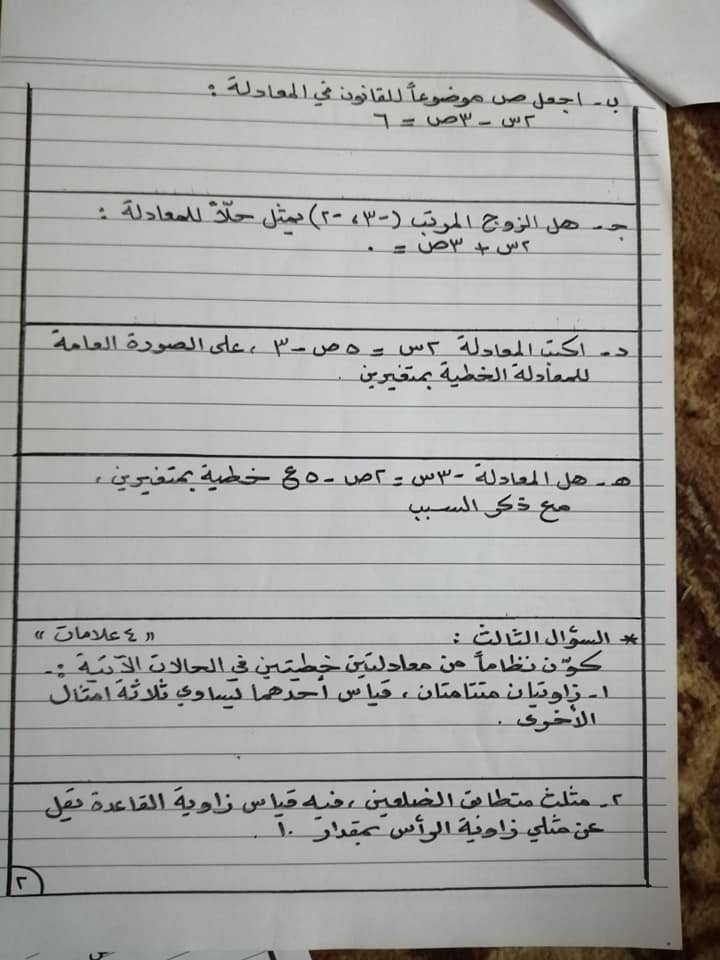 ب- اجعل ص موضوعاً للقانون في المعادلة :
٢س - ٣ص = ٦
جـ- هل الزوج المرتب (-٣، -٢) يمثل حلّاً للمعادلة :
٢س + ٣ص = ٠
د- اكتب المعادلة ٢س = ٥ص - ٣ ، على الصورة العامة
للمعادلة الخطية بمتغيرين .
هـ- هل المعادلة -٣س = ٢ص - ٥ع خطية بمتغيرين ،
مع ذكر السبب
* السؤال الثالث : " ٤ علامات "
كوّن نظاماً من معادلتين خطيتين في الحالات الآتية :-
١- زاويتان متتامتان ، قياس أحدهما يساوي ثلاثة امثال
الأخرى .
٢- مثلث متطابق الضلعين ، فيه قياس زاوية القاعدة يقل
عن مثلي زاوية الرأس بمقدار ١٠ .
٢